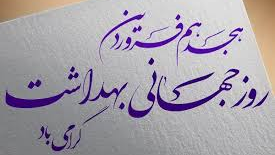 هجدهم فروردین
روز جهانی بهداشت
گرامی باد